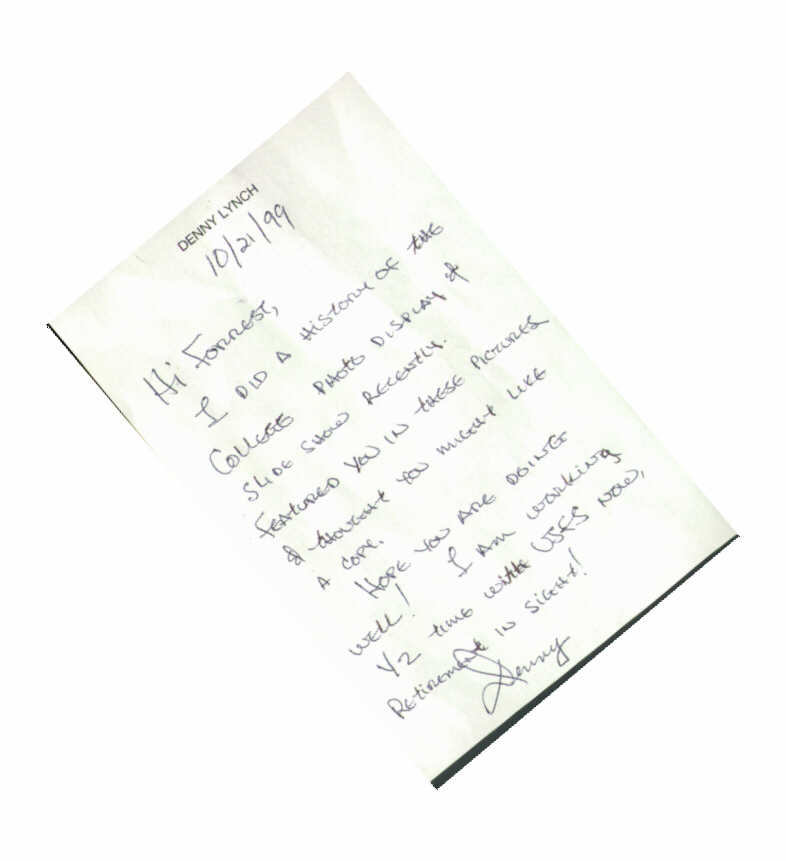 DENNY LYNCH
10/21/99
Hi FORREST,
I DID A HISTORY OF THE
COLLEGE PHOTO DISPLAY &
SLIDE SHOW RECENTLY.
FEATURED YOU IN THESE PICTURES
& THOUGHT YOU MIGHT LIKE
A COPY.
HOPE YOU ARE DOING
WELL! I AM WORKING
1/2 time with USES NOW,
Retirement IN SIGHT!
Denny